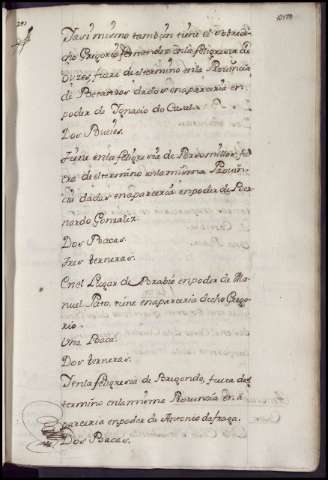 Y asi mismo tambien tiene el sobredi
cho Gregorio fernandez en la feligresia de
ouzes, fuera del termino en la Provincia
de Betanzos dados en aparceria en
poder de Ignacio do Casal
Dos Bueies.
Tiene en la feligresia de fue
ra del termino en la misma Provin
cia dadas en aparceria en poder de Ber
nardo Gonzalez
Dos Bacas.
tres terneras.
En el Lugar de en poder de Ma
nuel Pato, tiene en aparceria dicho Grego
rio.
Una Baca.
Dos terneras.
Y en la feligresia de Bregondo, fuera del
termino en la misma Provincia en a
parceria en poder de Antonio da fraga.
Dos Bacas.